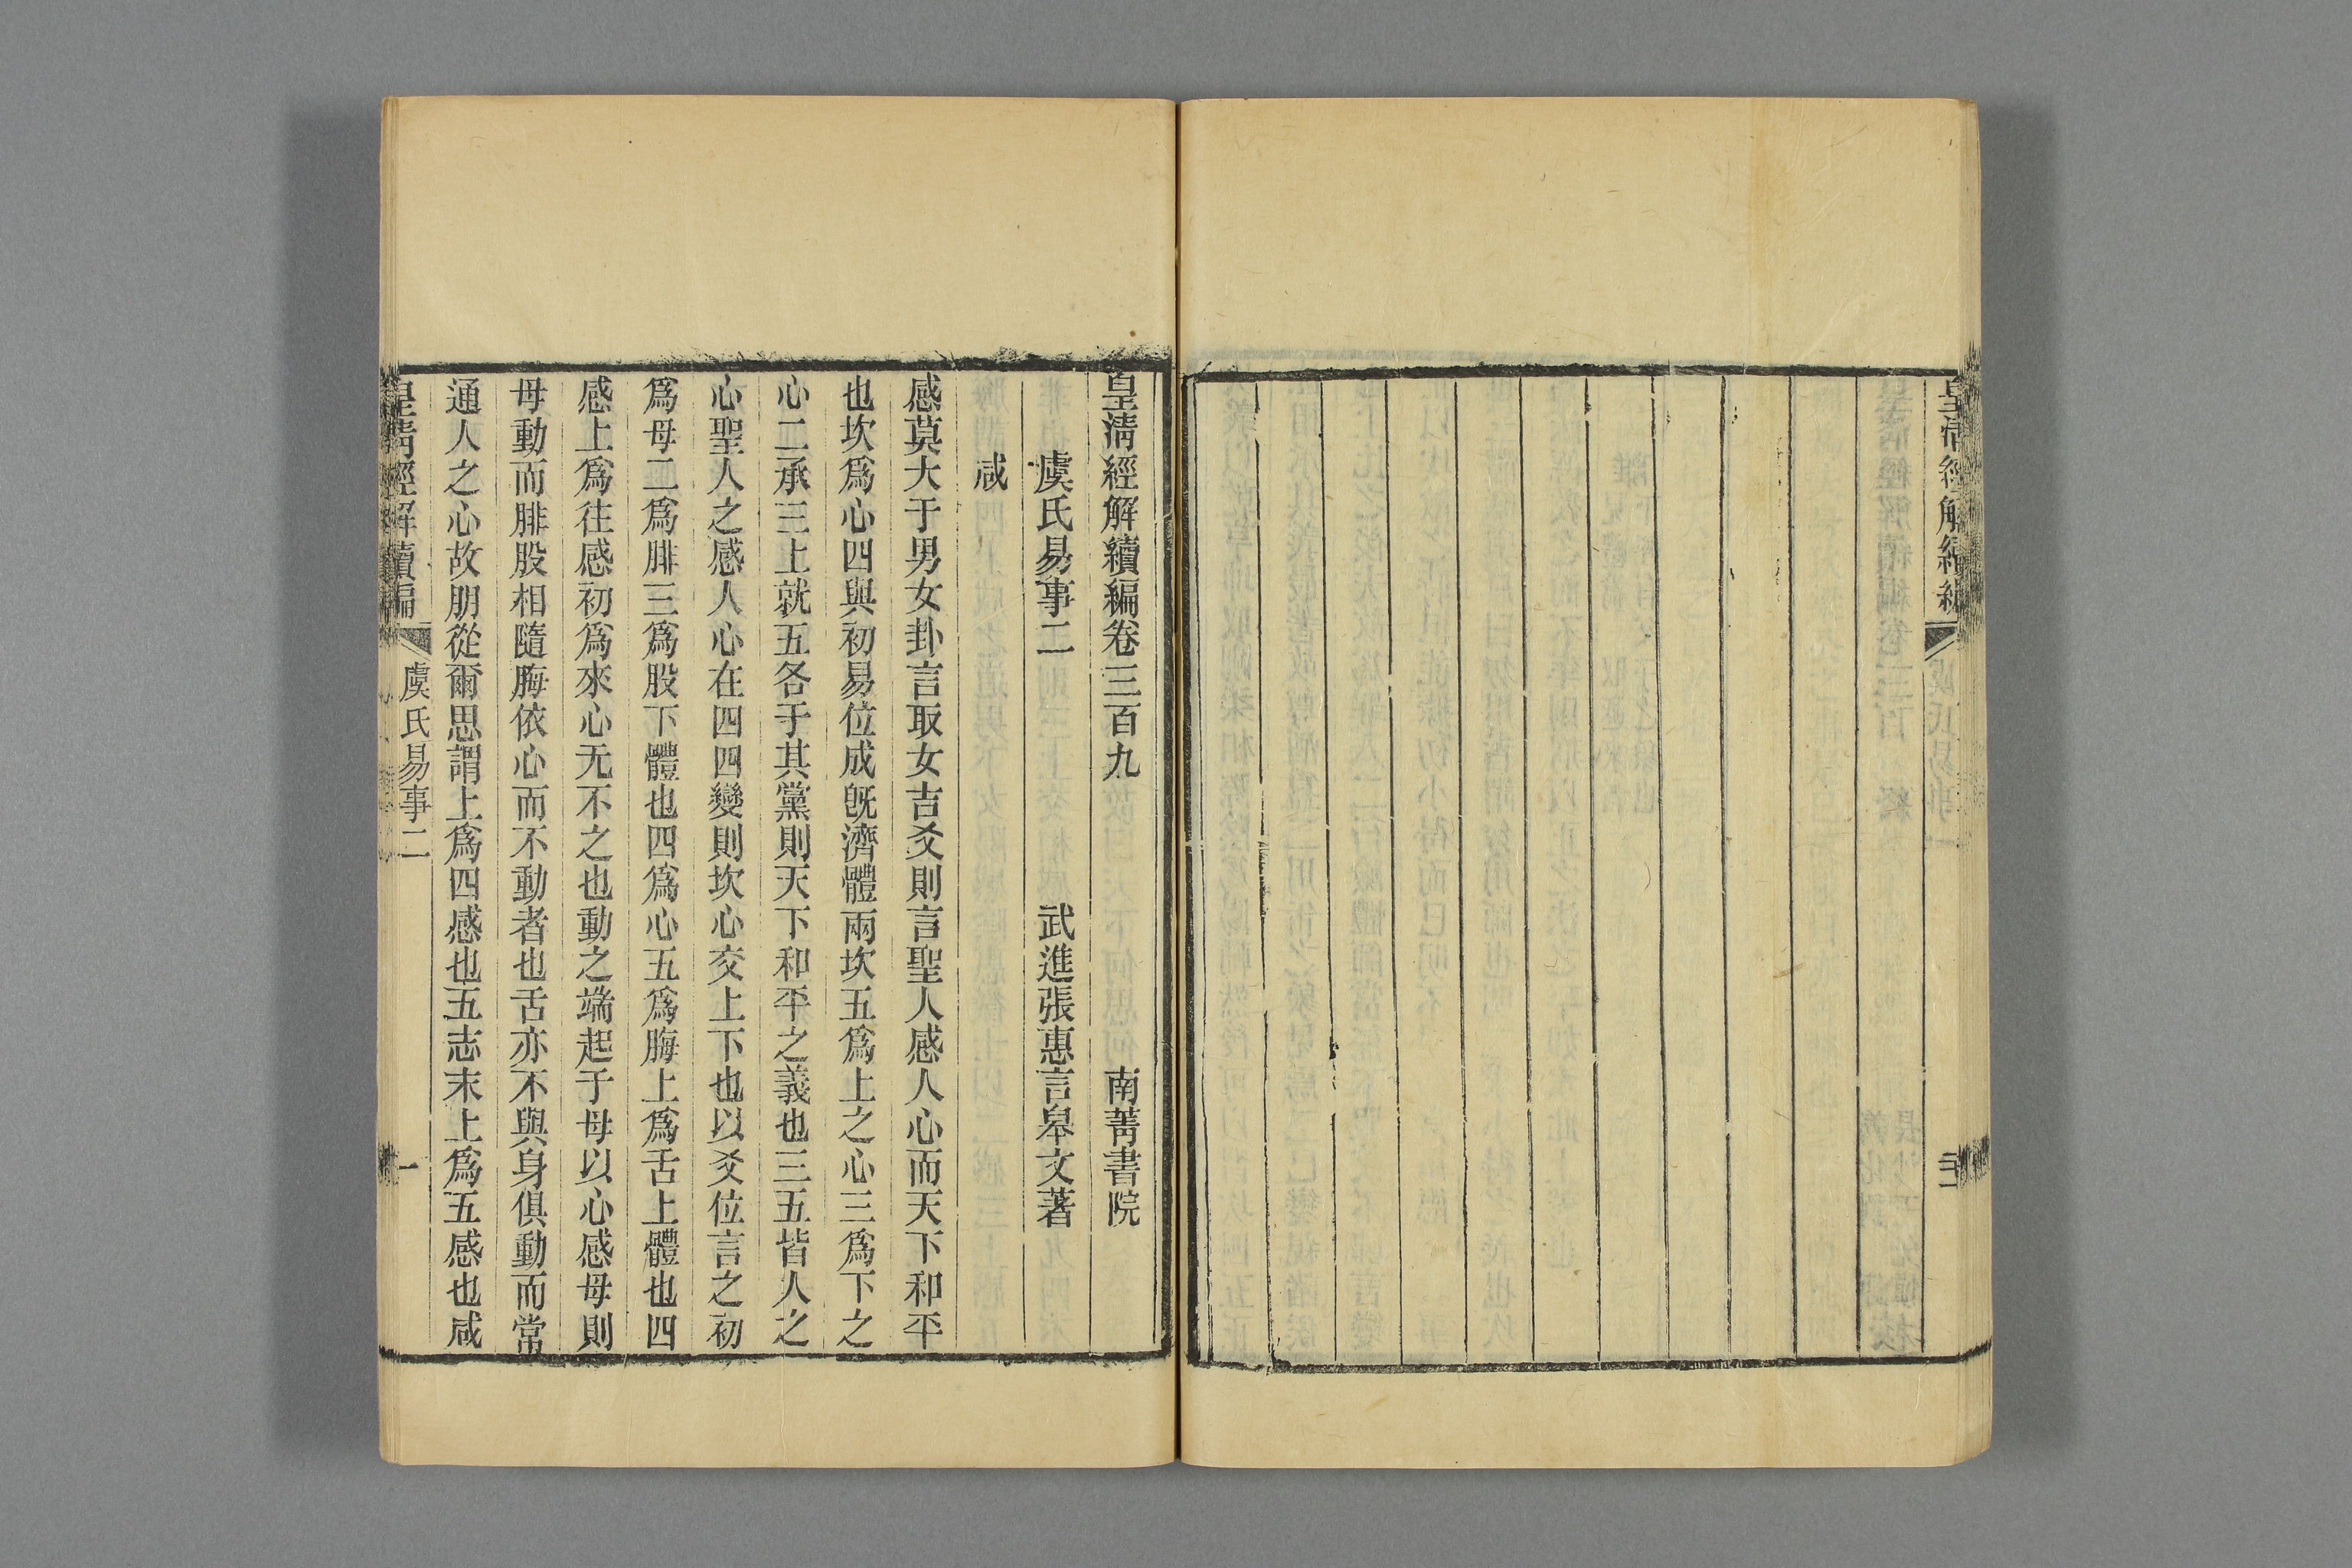 皇清經解續編
皇清經解續編卷三百九 南菁書院
虞氏易事二 武進張惠言皋文著
咸
感莫大于男女卦言取女吉爻則言聖人感人心而天下和平
也坎爲心四與初易位成旣濟體兩坎五爲上之心三爲下之
心二承三上就五各于其黨則天下和平之義也三五皆人之
心聖人之感人心在四四變則坎心交上下也以爻位言之初
爲母二爲腓三爲股下體也四爲心五爲脢上爲舌上體也四
感上爲往感初爲來心无不之也動之端起于母以心感母則
母動而腓股相隨脢依心而不動者也舌亦不與身俱動而常
通人之心故朋從爾思謂上爲四感也五志末上爲五感也咸
皇清經解續編 虞氏易事二 一